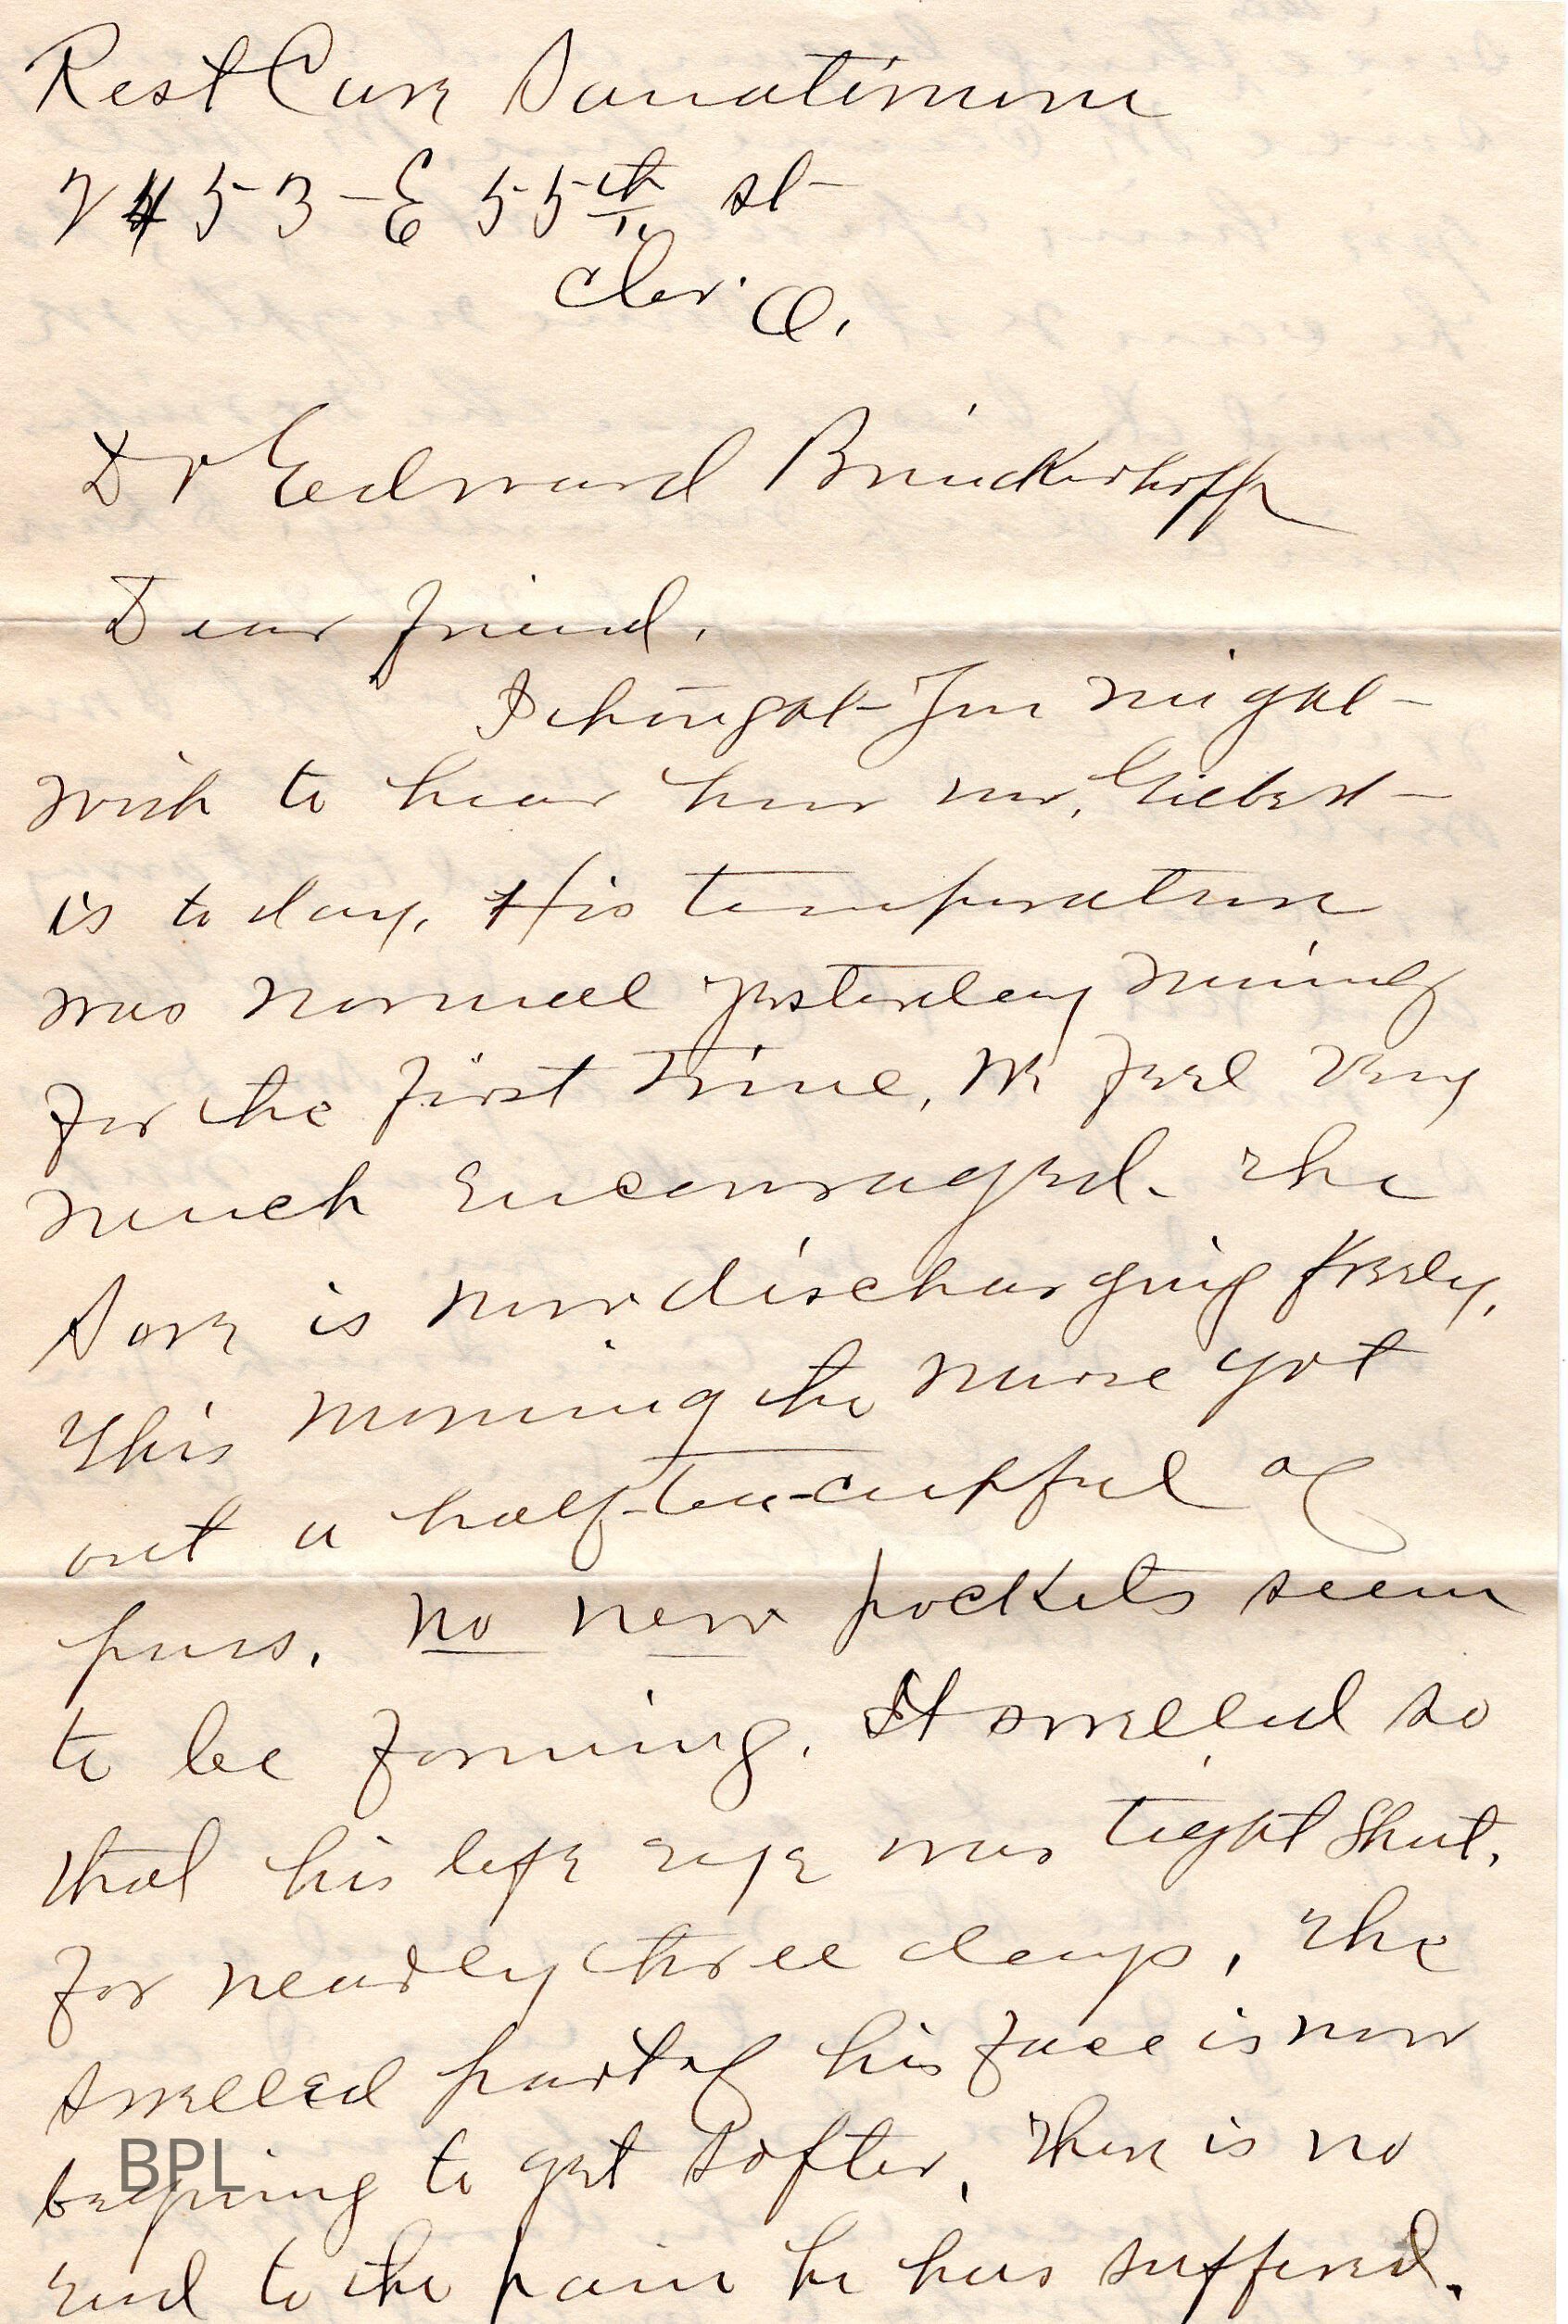 Rest Cure Sanatirium
2453-E 55th st
Clev. O.
Dr Edward Brinckerhoff
Dear friend,
I thought you might
wish to hear how mr, Giebert
is to day. His temperature
was normal yesterday
for the first time, We feel very
much encouraged. The
Sore is now discharging freely,
This morning the nurse got
out a half-tea-cupful of
puss. no new pockets seem
to be forming. It swelled so
that his left eye was tight shut,
for nearly three days, The
swelled part of his face is now
begining to get softer, There is no
end to the pain he has suffered.
BPL